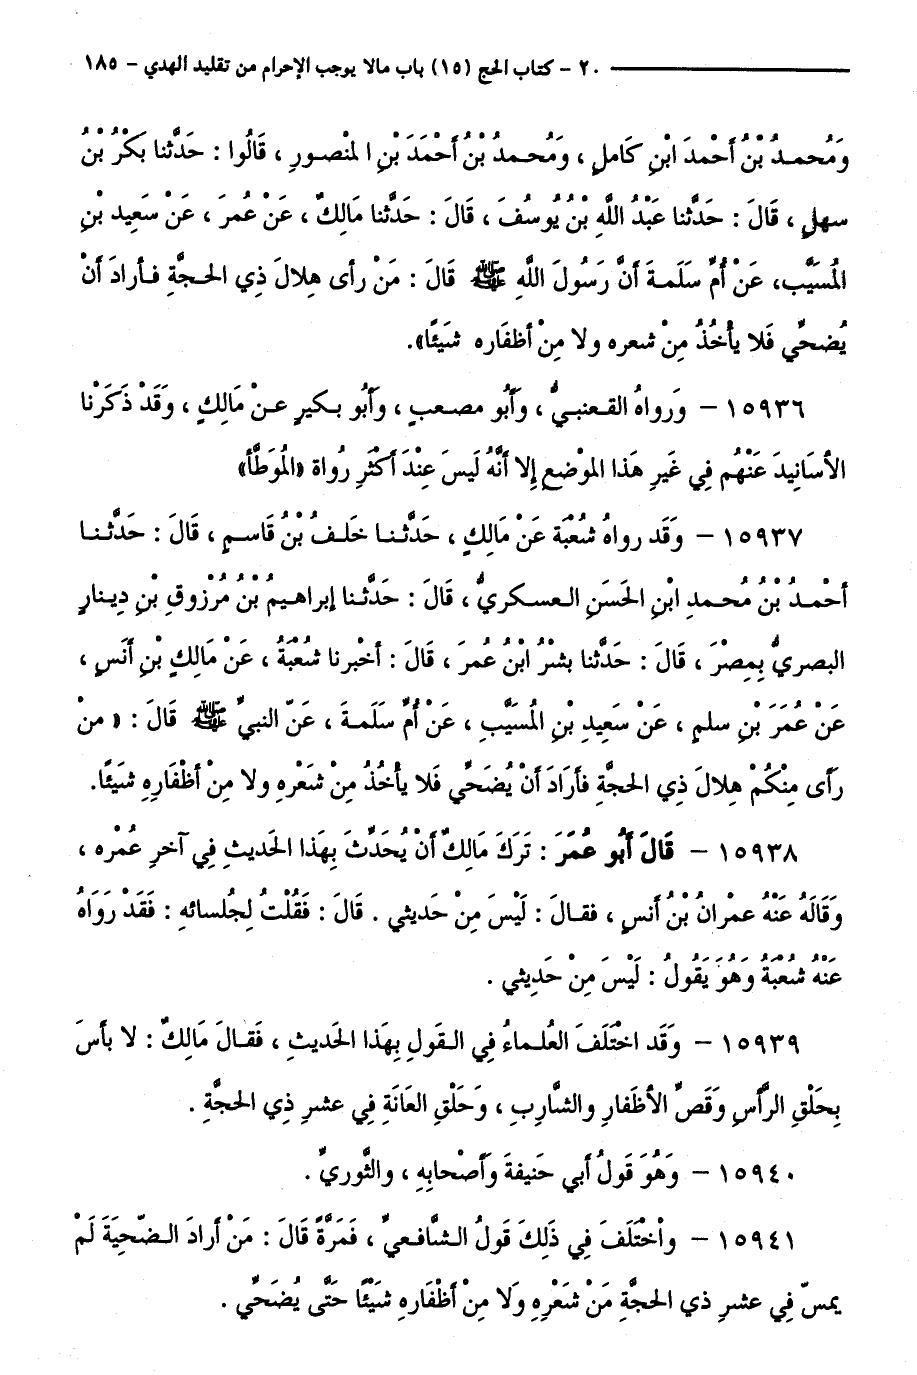 ٢٠ - كتاب الحج (١٥) باب مالا يوجب الإحرام من تقليد الهدي - ١٨٥
وَمُحمدُ بْنُ أَحْمدَ ابْنِ كَاملٍ ، وَمُحمدُ بْنُ أَحْمَدَ بْنِ المنْصورِ ، قَالُوا : حَدَّثنا بَكْرُ بْنُ
سهلٍ ، قَالَ : حَدَّثنا عَبْدُ اللَّهِ بْنُ يُوسُفَ ، قَالَ : حَدَّثنا مَالِكٌ ، عَنْ عُمرَ ، عَنْ سَعِيد بْنِ
المُسَيَّب، عَنْ أُمِّ سَلَمةَ أَنَّ رَسُولَ اللَّهِ ﷺ قَالَ : مَنْ رأى هِلالَ ذِي الحجَّةِ فأرادَ أنْ
يُضحِّي فَلا يأْخُذُ مِنْ شعره ولا مِنْ أظفَاره شَيئًا».
١٥٩٣٦ - وَرواهُ القعنبيُّ ، وأَبُو مصعبٍ ، وَأَبُو بكيرٍ عنْ مَالِكٍ ، وَقَدْ ذَكَرْنا
الأسَانِيدَ عَنْهُم فِي غَيرِ هَذا الموْضعِ إِلا أَنَّهُ لَيسَ عِنْدَ أكْثَرِ رُواة «المُوَطَّأ»
١٥٩٣٧ - وَقَد رواهُ شُعْبَة عَنْ مَالِكٍ ، حَدَّثنا خَلفُ بْنُ قَاسمٍ ، قَالَ : حَدَّثنا
أحْمدُ بْنُ مُحمدِ ابْنِ الحَسَنِ العسكريُّ ، قَالَ : حَدَّثنا إبراهيمُ بْنُ مُرْزوقِ بْنِ دِينارٍ
البصريُّ بِمِصْرَ ، قَالَ : حَدَّثنا بشْرُ ابْنُ عُمرَ ، قَالَ : أخْبرنا شُعْبَةُ ، عَنْ مَالِكِ بْنِ أنَسٍ ،
عَنْ عُمَرَ بْنِ سلمٍ ، عَنْ سَعِيدِ بْنِ المُسَيَّبِ ، عَنْ أُمِّ سَلَمةَ ، عَنّ النبيِّ ﷺ قَالَ : « منْ
رَأى مِنْكُمْ هِلالَ ذي الحجَّةِ فَأرَادَ أنْ يُضَحِّي فَلا يأخُذُ مِنْ شَعْرِهِ ولا مِنْ أظْفَارِهِ شَيئًا.
١٥٩٣٨ - قَالَ أَبُو عُمَرَ : تَرَكَ مَالِكٌ أنْ يُحَدِّثَ بِهَذا الحَديثِ فِي آخرِ عُمْره ،
وَقَالَهُ عَنْهُ عِمْرانُ بْنُ أنَسٍ ، فقالَ : لَيْسَ مِنْ حَديثي . قَالَ : فَقُلْتُ لِجُلسائه : فَقَدْ رَوَاهُ
عَنْهُ شُعْبَةُ وَهُوَ يَقُولُ : لَيْسَ مِنْ حَدِيثِي .
١٥٩٣٩ - وَقَد اخْتَلَفَ العُلماءُ فِي القَولِ بِهَذا الحَديثِ ، فَقالَ مَالِكٌ : لا بأسَ
بِحَلْقِ الرَّأسِ وَقَصِّ الأظْفَارِ والشَّارِبِ ، وَحَلْقِ العَانَةِ فِي عشرِ ذي الحجَّةِ .
١٥٩٤٠ - وَهُوَ قَولُ أبي حَنيفةَ وَأصْحابِهِ ، والثَّوريِّ .
١٥٩٤١ - واخْتَلَفَ فِي ذَلِكَ قَولُ الشَّافعيِّ ، فَمَرَّةً قَالَ : مَنْ أرادَ الضّحيَةَ لَمْ
يمسّ فِي عشرِ ذي الحجَّةِ مَنْ شَعْرِهِ وَلا مِنْ أظْفَارِه شَيْئًا حَتَّى يُضَحِّي .